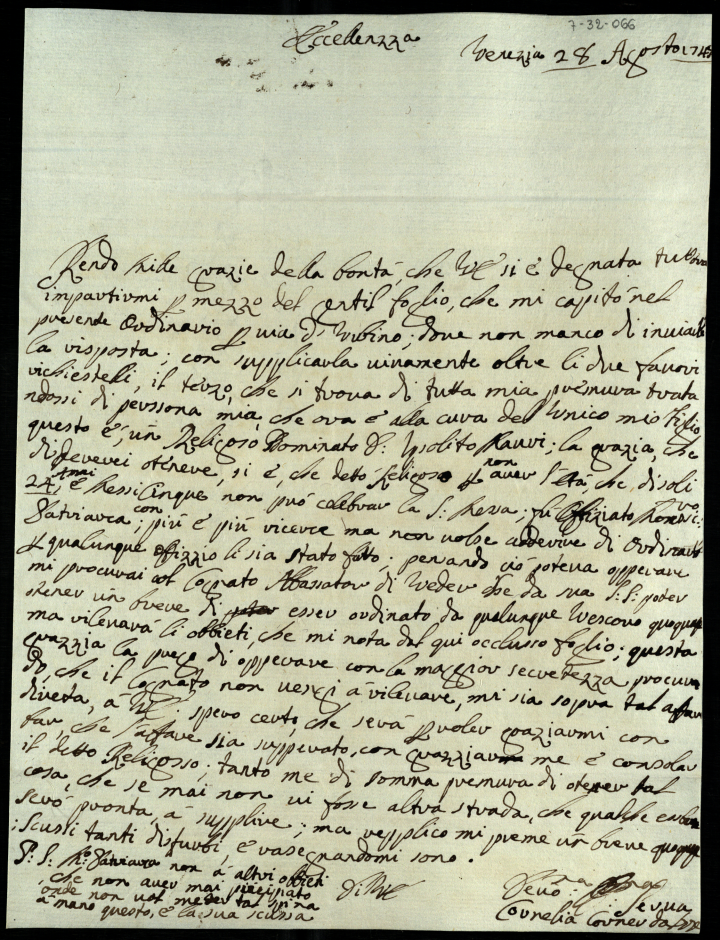 7-32-066
Eccellenzza
Venezia 28 Agosto 174
Rendo mille grazie della bontà, che VE si è degnata
impartirmi p mezzo del gentil foglio, che mi capitò nel
presende Ordinario p via di Urbino; dove non manco di
la risposta; con supplicarla vivamente oltre li due favori
richiesteli, il terzo, che si trova di tutta mia premura trata
ndossi di perssona mia, che ora è alla cura del Unico mio Figlio
questo è, un Religoso Nominato D: Ipolito; la grazia, che
di deverei otenere, si è, che detto Religoso p non aver l'età che di soli
24 anni è Messi Cinque non può celebrar la S: Messa; fu Offiziato
Patriarca con più è più viceree ma non volse aderire di
p qualunque offizzio li sia stato fatto; pensando ciò poteva opperare
mi procurai col Cognato Abassator di veder che da sua S: S: poter
otener un breve di esser ordinato da qualunque Vescovo
ma rilevarà li obbieti, che mi nota dal qui occlusso foglio; questa
grazzia la prego di opperare con la maggior secretezza procura
do, che il Cognato non venghi à rilevare, mi sia sopra tal affare
direta, à VE; spero certo, che serà p voler graziarmi con
far che l'affare sia supperato, con grazziarmi me è consolar
il detto Religosso; tanto me di somma premura di otener tal
cosa, che se mai non vi fosse altra strada, che qualche
serò pronta, à supplire; ma repplico mi preme un breve
; Scussi tanti disturbi è rasegnandomi sono.
P: S: Patriarca non à altri obbieti
che non aver mai precipitato
onde non vol meder tal spina
à mano questo, è la sua scussa
Di VE
Devo:
Serva
Cornelia Corner da